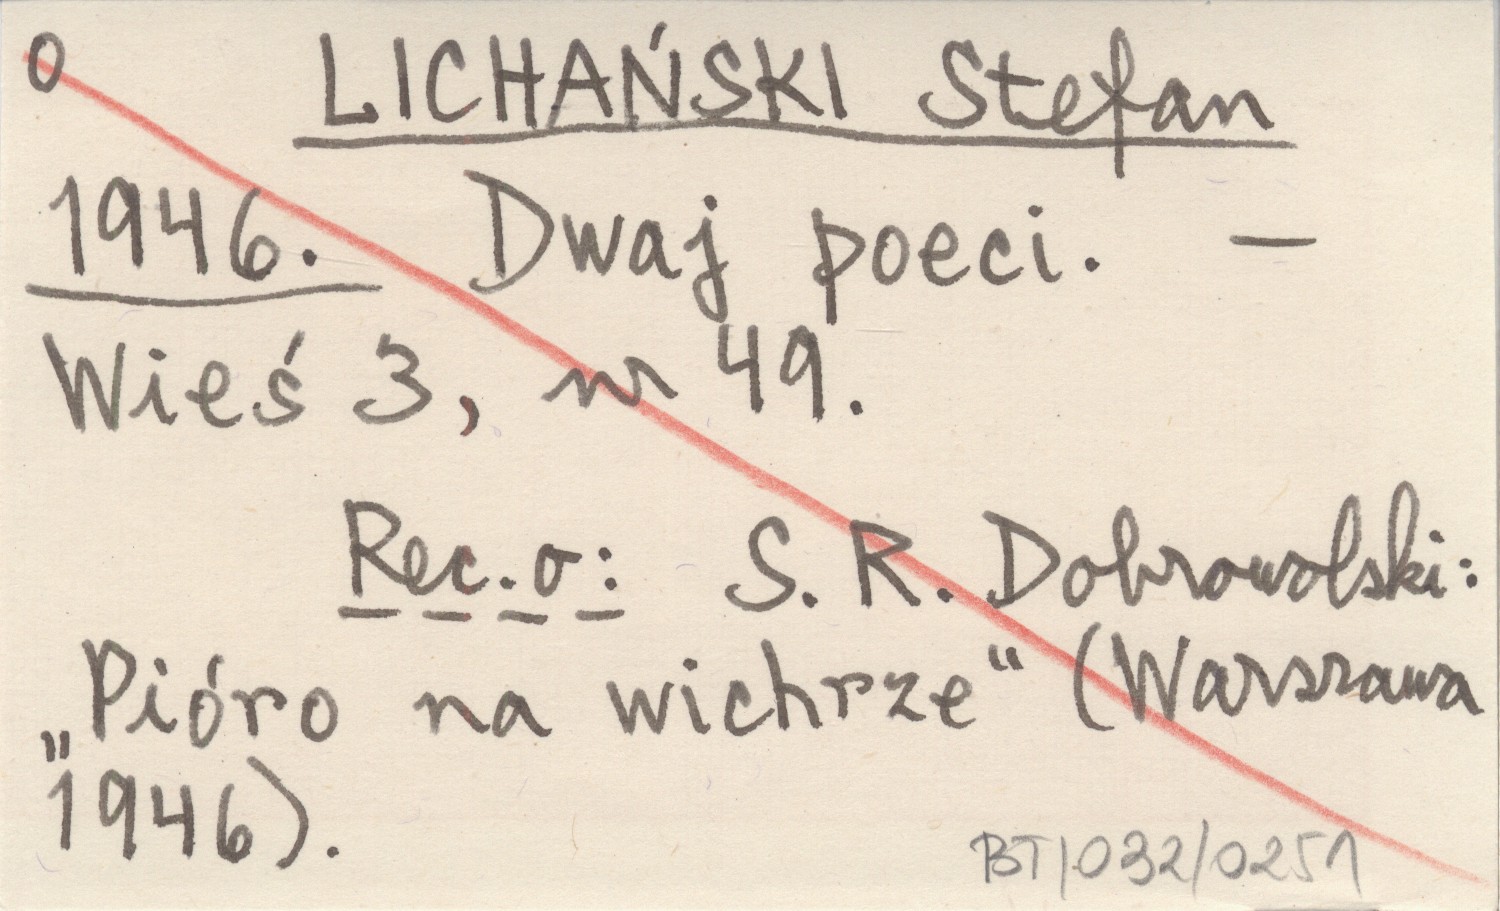 0 LICHAŃSKI Stefan
1946. Dwaj poeci. —
Wieś 3, nr 49.
Rec. o: S. R. Dobrowolski:
„Pióro na wichrze“ (Warszawa
1946).
BT/032/0251